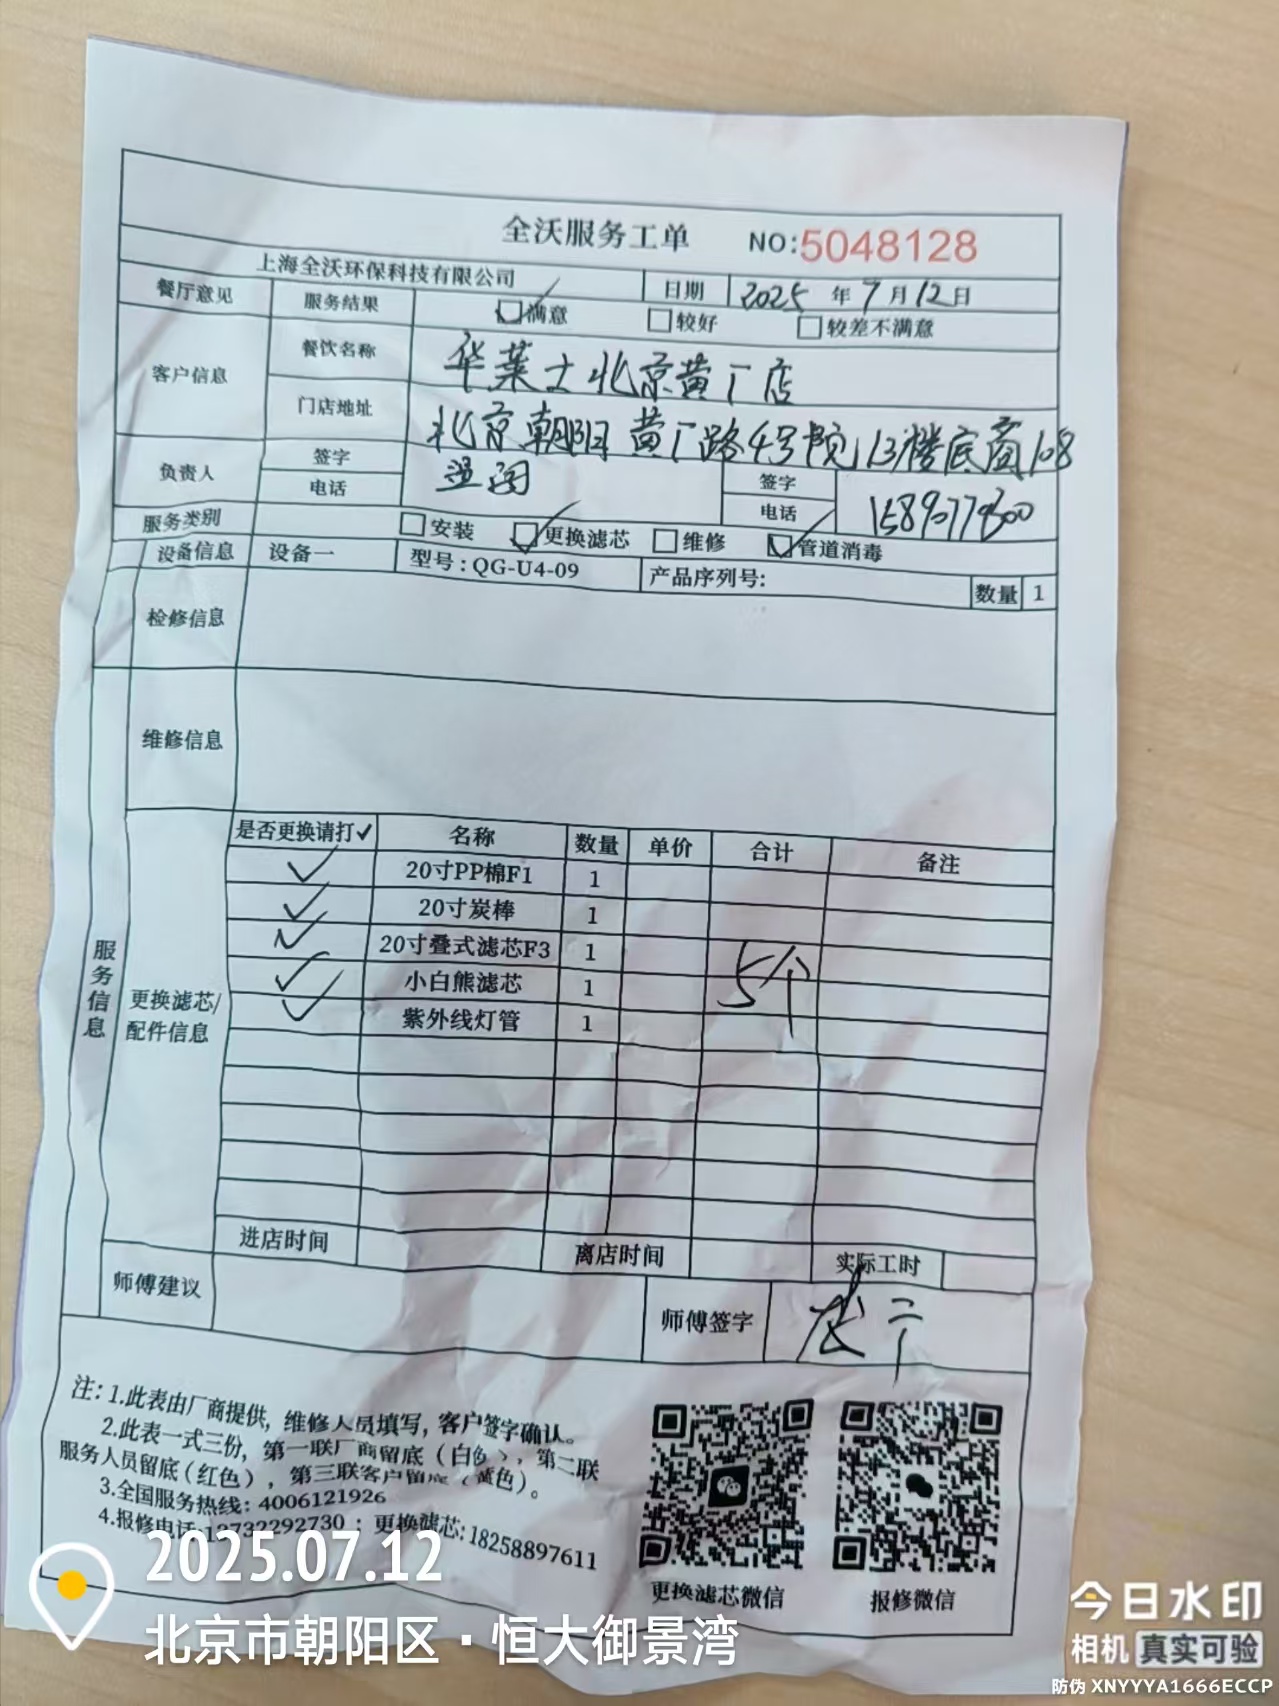 全沃服务工单 NO:5048128
上海全沃环保科技有限公司 日期 2025 年 7 月 12 日
餐厅意见 服务结果 满意 较好 较差不满意
客户信息 餐饮名称 华莱士北京黄厂店
门店地址 北京朝阳黄厂路4号院13楼底商108
负责人 签字 签字
电话 电话
服务类别 安装 ✓更换滤芯 维修 ✓管道消毒
设备信息 设备一 型号:QG-U4-09 产品序列号: 数量 1
检修信息
维修信息
服务信息
更换滤芯/配件信息
是否更换请打✓ 名称 数量 单价 合计 备注
✓ 20寸PP棉F1 1
✓ 20寸炭棒 1
✓ 20寸叠式滤芯F3 1
✓ 小白熊滤芯 1 5个
✓ 紫外线灯管 1
进店时间 离店时间 实际工时
师傅建议 师傅签字
注:1.此表由厂商提供,维修人员填写,客户签字确认。
2.此表一式三份,第一联厂商留底(白色),第二联
服务人员留底(红色),第三联客户留底(黄色)。
3.全国服务热线:4006121926
4.报修电话:13732292730;更换滤芯:18258897611
更换滤芯微信 报修微信
2025.07.12
北京市朝阳区·恒大御景湾
今日水印
相机 真实可验
防伪 XNYYYA1666ECCP